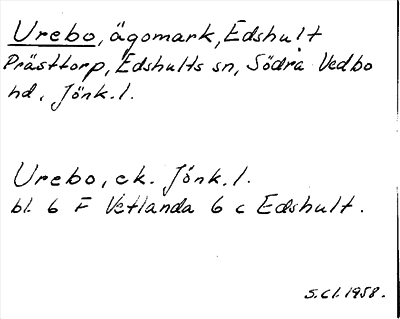 Urebo, ägomark, Edshult
Prästtorp, Edshults sn, Södra Vedbo
hd, Jönk. l.
Urebo, ek. Jönk. l.
bl. 6 F Vetlanda 6 c Edshult.
S.Cl. 1958.